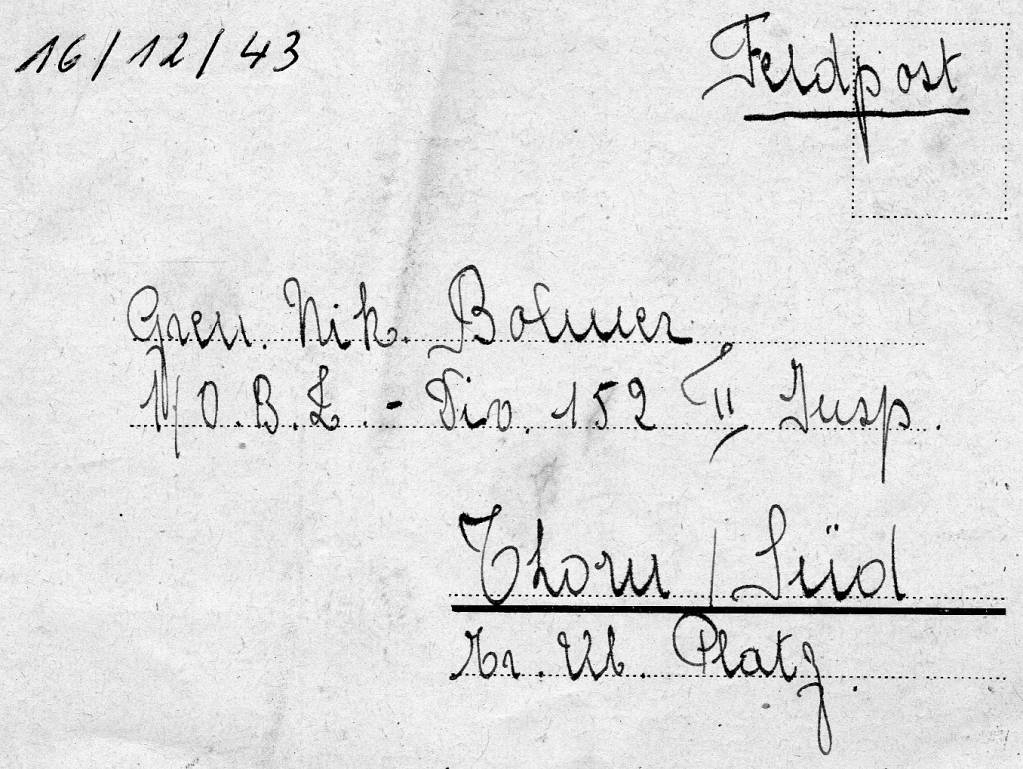 16/12/43
Feldpost
Gren. Nik. Bohmer
1/O.B.L. - Div. 152 II Insp.
Thorn / Süd
Tr. Üb. Platz.